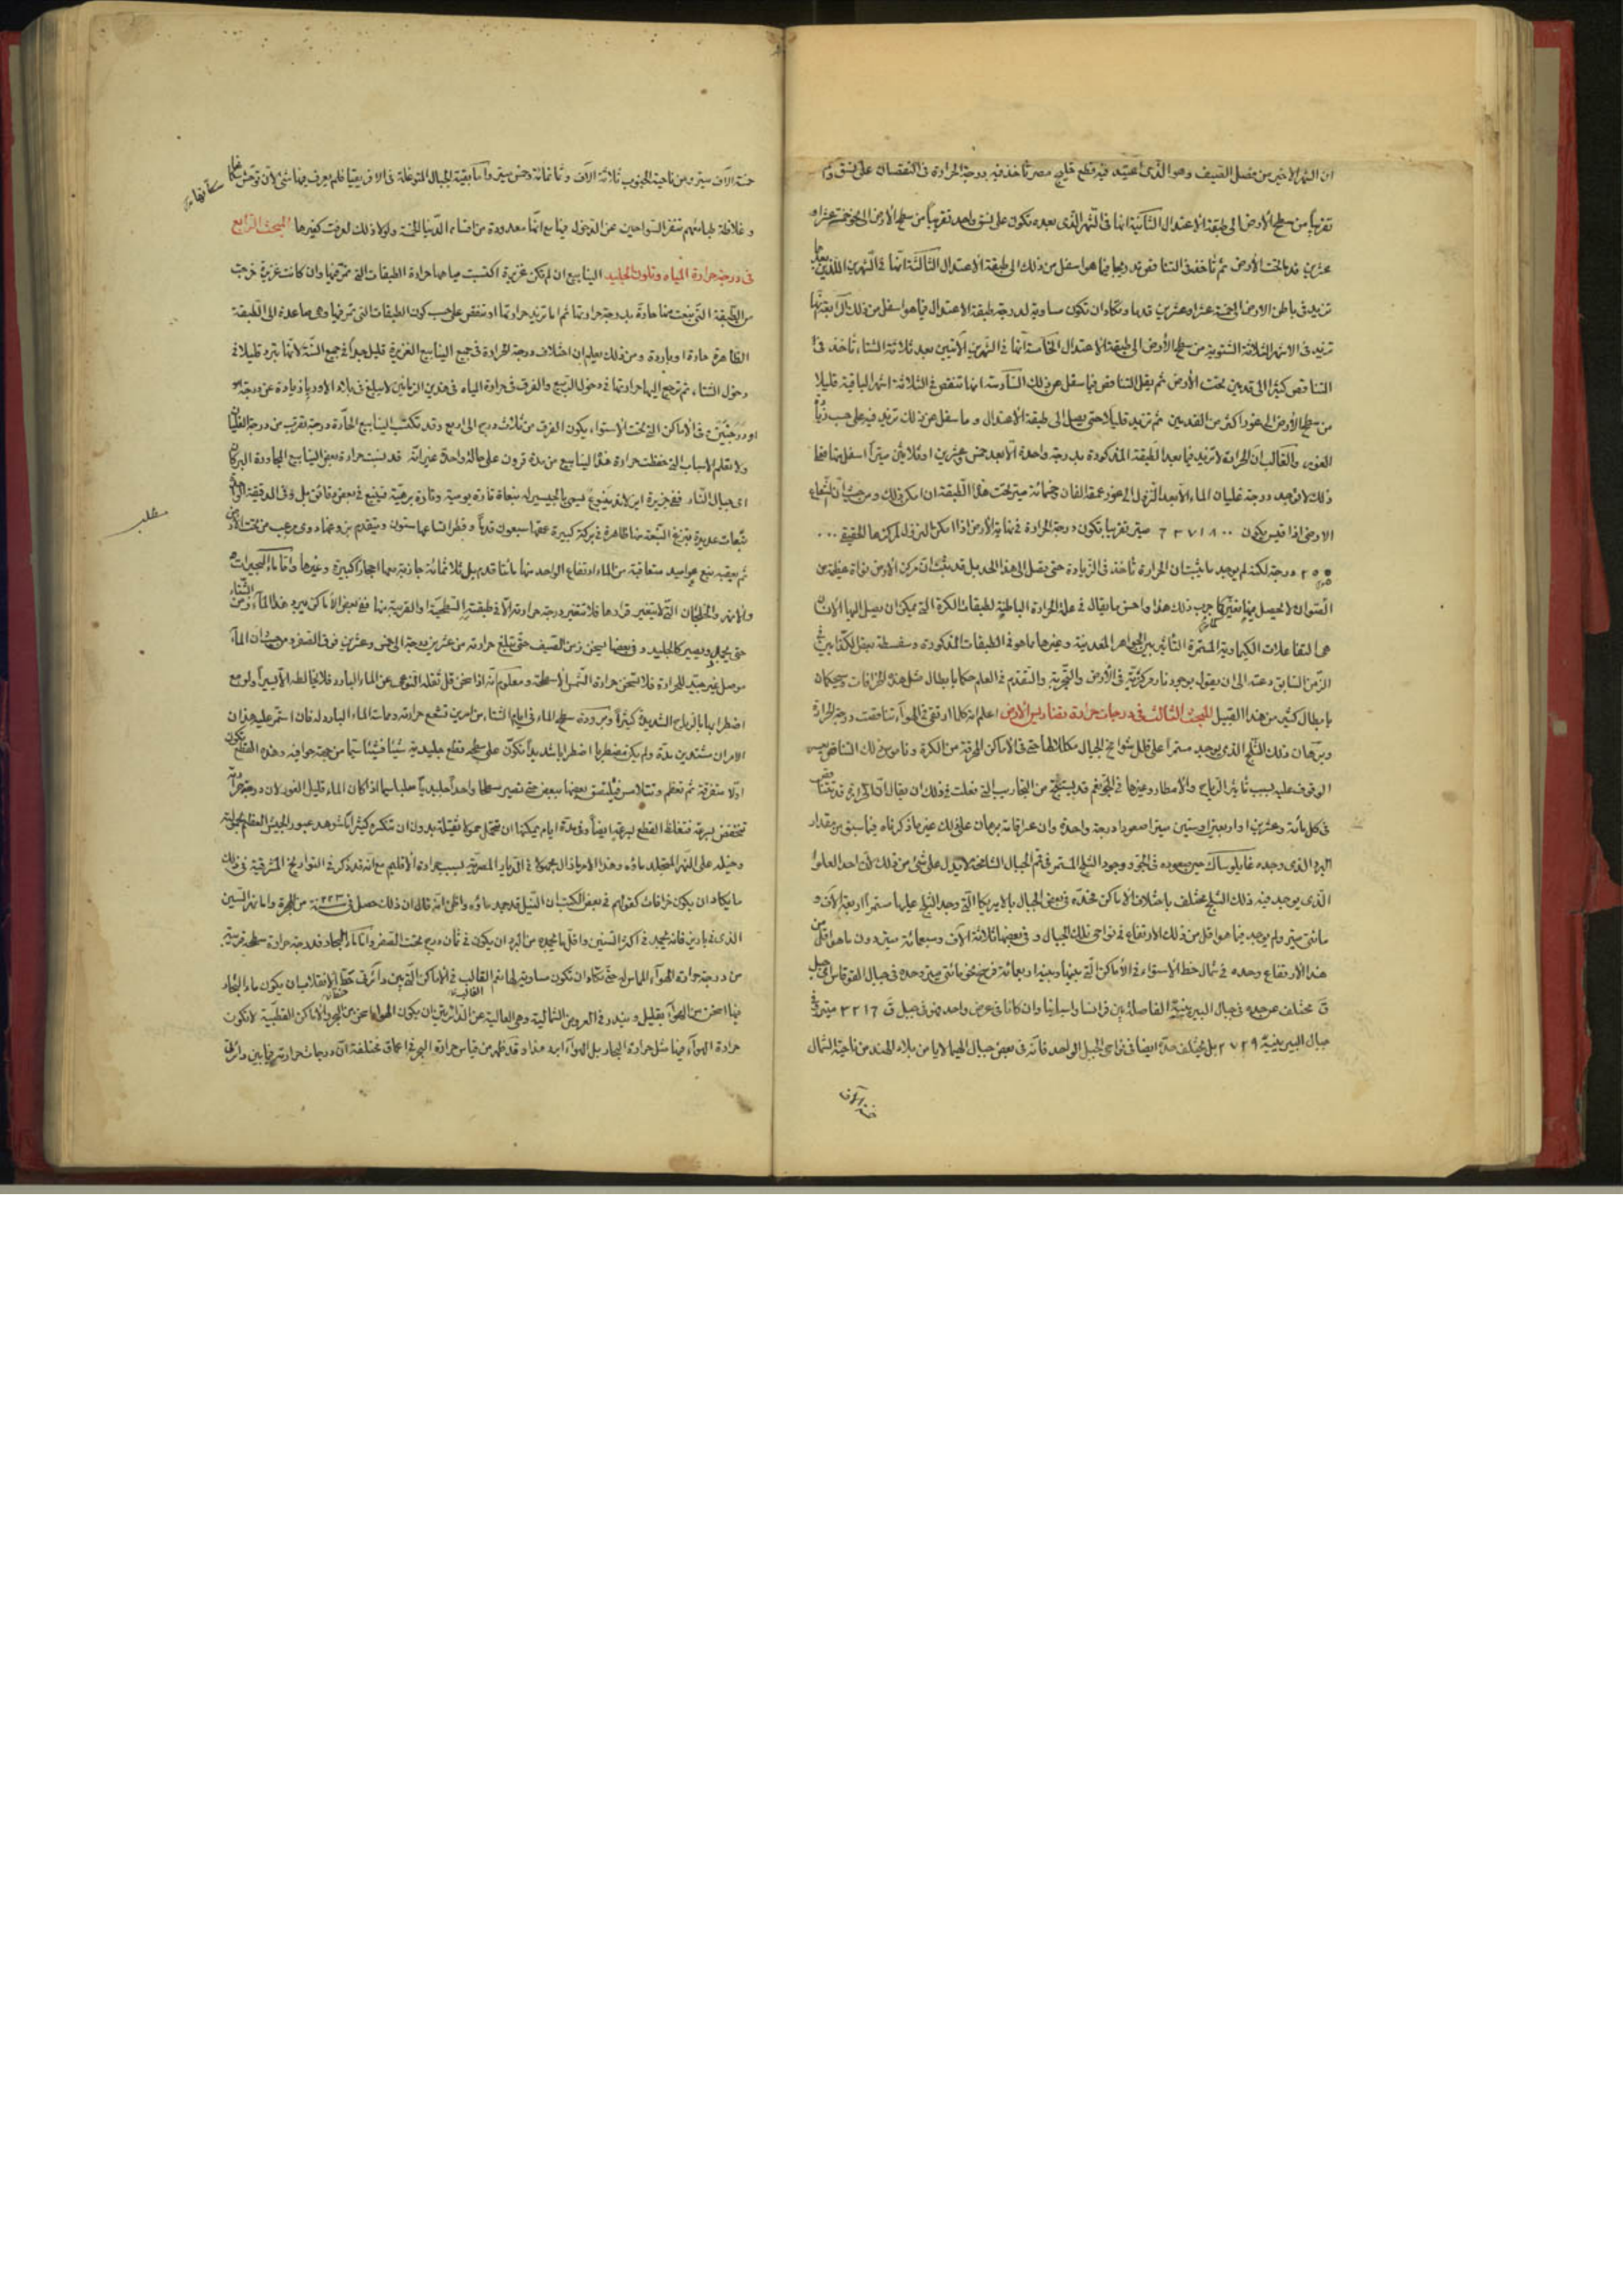 ان الشهر الاخير من فصل الصيف وهو الذى فيه قطع خليج مصر تأخذ فيه درجة الحرارة فى النقصان على نسق
تقريبا من سطح الأرض الى طبقة الاعتدال الثانية انما فى الشهر الذى بعده تكون على نسق واحد تقريبا من سطح الأرض الى نحو خمسة عشر او
عشرين قدما تحت الأرض ثم تأخذ فى التناقص تدريجا فيما هو اسفل من ذلك الى طبقة الاعتدال الثالثة انما فى الشهرين اللذين بعد
تزيد فى باطن الارض الى خمسة عشر او عشرين قدما وتكاد ان تكون مساوية لدرجة طبقة الاعتدال فيما هو اسفل من ذلك الرابعة انها
تزيد فى الاشهر الثلاثة الشتوية من سطح الأرض الى طبقة الاعتدال الخامسة انما فى الشهرين الآتيين بعد ثلاثة الشتاء تأخذ فى
التناقص كثيرا الى قدمين تحت الأرض ثم يقل التناقص فيما سفل عن ذلك السادسة انها تنقص فى الثلاثة اشهر الباقية قليلا
من سطح الأرض الى غور اكثر من القدمين ثم تزيد قليلا حتى يصل الى طبقة الاعتدال وما سفل عن ذلك تزيد فيه على حسب
الغور والغالب ان الحرارة لا تزيد فيما بعد الطبقة المذكورة درجة واحدة الا بعد خمس وعشرين او ثلاثين ميترا اسفل منها فعلى
ذلك لا توجد درجة غليان الماء الا بعد النزول الى غور عمقه الفان وخمسمائة ميتر تحت هذه الطبقة ان امكن ذلك ومن حيث ان شعاع
الارض اذا قيس يكون ٦٣٧١٨٠٠ ميتر تقريبا تكون درجة الحرارة فى نهاية الأرض اذا امكن النزول لمركزها الحقيقى
٢٥٥٠٠٠ درجة لكنه لم يوجد ما يثبت ان الحرارة تأخذ فى الزيادة حتى يصل الى هذا الحد بل قد يثبت ان مركز الارض نواة عظيمة من
الصوان لا يحصل فيها تغير كما جرب ذلك هذا واحسن ما يقال فى علة الحرارة الباطنية لطبقات الكرة التى يمكن ان يصل اليها الانسان
هى التفاعلات الكيماوية المستمرة التأثير بين الجواهر المعدنية وغيرها مما هو فى الطبقات المذكورة وسفسطة بعض
الزمن السابق دعته الى ان يقول بوجود نار مركزية فى الأرض والتجربة والتقدم فى العلم حكما بابطال مثل هذه الخرافات وسيحكمان
بابطال كثير من هذا القبيل المبحث الثالث فى درجات حرارة بقناديس الارض اعلم انه كلما ارتقى فى الهواء تناقصت درجة الحرارة
وبرهان ذلك الثلج الذى يوجد مستمرا على قلل شوامخ الجبال مكللا لها حتى فى الاماكن المحرقة من الكرة وناموس ذلك التناقص
الوقوف عليه بسبب تأثير الرياح والأمطار وغيرها فى الجو نعم قد يستنتج من التجاريب التى فعلت فى ذلك ان يقال ان الحرارة قد تتناقص
فى كل مائة وعشرين او اربعين او ستين ميترا صعودا درجة واحدة
البرد الذى وجده غايلوساك حين صعوده فى الجو ووجود الثلج المستمر فى قمم الجبال الشامخة لا يدل على شئ من ذلك لان احد العلو
الذى يوجد فيه ذلك الثلج مختلف باختلاف الاماكن فى بعض الجبال بالامريكا التى وجد الثلج عليها مستمرا اربعة الآف و
مائتى ميتر ولم يوجد فيما هو اقل من ذلك الارتفاع فى نواحى تلك الجبال وفى بعضها ثلاثة الآف وسبعمائة ميتر دون ما هو اقل من
هذا الارتفاع وحده فى شمال خط الاستواء فى الأماكن التى بينها وبينه اربعمائة فرسخ نحو مائتى ميتر وحده فى جبال القوقاس
مختلف عن حده فى جبال البيرينية الفاصلة بين فرانسا واسبانيا وان كانا فى عرض واحد فهو فى جبل ق ٣٢١٦ ميتر وفى
جبال البيرينية ٢٧٢٩ بل يختلف حده ايضا فى نواحى الجبل الواحد فانه فى بعض جبال الهيمالايا من بلاد الهند من ناحية الشمال
خمسة الآف
خمسة الآف ميتر ومن ناحية الجنوب ثلاثة الآف وثمانمائة وخمس ميتر واما بقية الجبال المتوغلة فى الافريقيا فلم يعرف فيها شئ لان توحش سكانها
وغلاظة طباعهم تنفر السواحين عن الدخول فيها مع انها معدودة من اقسام الدنيا الخمسة ولولا ذلك لعرفت كغيرها المبحث الرابع
فى درجة حرارة المياه وتكون الجليد الينابيع ان لم تكن غزيرة اكتسبت مياهها حرارة الطبقات التى تمر فيها وان كانت غزيرة خرجت
من الطبقة التى نبعت منها حارة بدرجة حرارتها ثم اما تزيد حرارتها او تنقص على حسب كون الطبقات التى تمر فيها وهى صاعدة الى الطبقة
الظاهرة حارة او باردة ومن ذلك يعلم ان اختلاف درجة الحرارة فى جميع الينابيع الغزيرة قليل جدا فى جميع السنة لانها تبرد قليلا فى
دخول الشتاء ثم ترجع اليها حرارتها فى دخول الربيع والفرق فى حرارة المياه فى هذين الزمانين لا يبلغ فى بلاد الاوروبا زيادة عن درجة
او درجتين وفى الأماكن التى تحت الاستواء يكون الفرق من ثلاث درج الى اربع وقد تكتسب الينابيع الحارة درجة تقرب من درجة الغليان
ولا تعلم الأسباب التى حفظت حرارة هذه الينابيع من مدة قرون على حالة واحدة غير انه قد نسبت حرارة بعض الينابيع المجاورة البركان
اى جبال النار ففى جزيرة ايزلانده ينبوع يسمى بالجيسير له نبعات تارة يومية وتارة برهية فينبع فى بعض دقائق بل وفى الدقيقة الواحدة
نبعات عديدة فتنبع النبعة منها ظاهرة فى بركة كبيرة عمقها سبعون قدما وقطر اتساعها ستون ويتقدم نزوعها دوى مرعب من تحت الأرض
ثم يعقبه نبع عواميد متعاقبة من الماء ارتفاع الواحد منها مائتا قدم بل ثلاثمائة جاذبة معها احجارا كبيرة وغيرها واما ماء البحيرات
والانهر والخلجان التى لا يتغير قرارها فلا تتغير درجة حرارته الا فى طبقته السطحية او القريبة منها ففى بعض الأماكن يبرد هذا الماء زمن الشتاء
حتى يجمد ويصير كالجليد وفى بعضها يسخن زمن الصيف حتى تبلغ حرارته من عشرين درجة الى خمس وعشرين فوق الصفر ومن حيث ان الماء
موصل غير جيد للحرارة فلا تسخن حرارة الشمس الا سطحه ومعلوم انه اذا سخن قل ثقله النوعى عن الماء البارد فلا يخالطه الا يسيرا ولو مع
اضطرابها بالرياح الشديدة كثيرا وبرودة سطح الماء فى ايام الشتاء من امرين تشعع حرارته ومماسة الماء البارد له فان استمر عليه هذان
الامران مشتدين مدة ولم يكن مضطربا اضطرابا شديدا تكون على سطحه قطع جليدية شيئا فشيئا سيما من جهة حوافيه وهذه القطع تكون
اولا متفرقة ثم تعظم وتتلامس فيلتصق بعضها ببعض حتى تصير سطحا واحدا جليديا صلبا سيما اذا كان الماء قليل الغور لان درجة حرارته
تنخفض بسرعة فتغلظ القطع بسرعة ايضا وفى مدة ايام يمكنها ان تحتمل حمولا ثقيلة بدون ان تنكسر كثيرا ما شوهد عبور الجيش العظيم بجماله
وخيله على النهر المتجلد ماؤه وهذا الامر ما زال مجهولا فى الديار المصرية بسبب حرارة الأقليم مع انه قد ذكر فى التواريخ المشرقية فى ذلك
ما يكاد ان يكون خرافات كقولهم فى بعض الكتب ان النيل قد جمد ماؤه واظن انه قال ان ذلك حصل فى سنة من الهجرة واما نهر السين
الذى فى باريز فانه يجمد فى اكثر السنين واقل ما يجمده من البرد ان يكون فى ثمان درج تحت الصفر واما ماء البحار فدرجة حرارة سطحه قريبة
من درجة حرارة الهواء المماس له حتى تكاد ان تكون مساوية لها نعم الغالب فى الأماكن التى بين دائرتى خط الانقلاب ان يكون ماء البحار
فيها اسخن من الهواء بقليل ويندر فى العروض الشمالية وهى العالية عن الدائرتين ان يكون الهواء اسخن من البحر والاماكن القطبية لا تكون
حرارة الهواء فيها مثل حرارة البحار بل الهواء ابرد هذا وقد ظهر من قياس حرارة البحر فى اعماق مختلفة ان درجات حرارته فيما بين دائرتى
مطلب